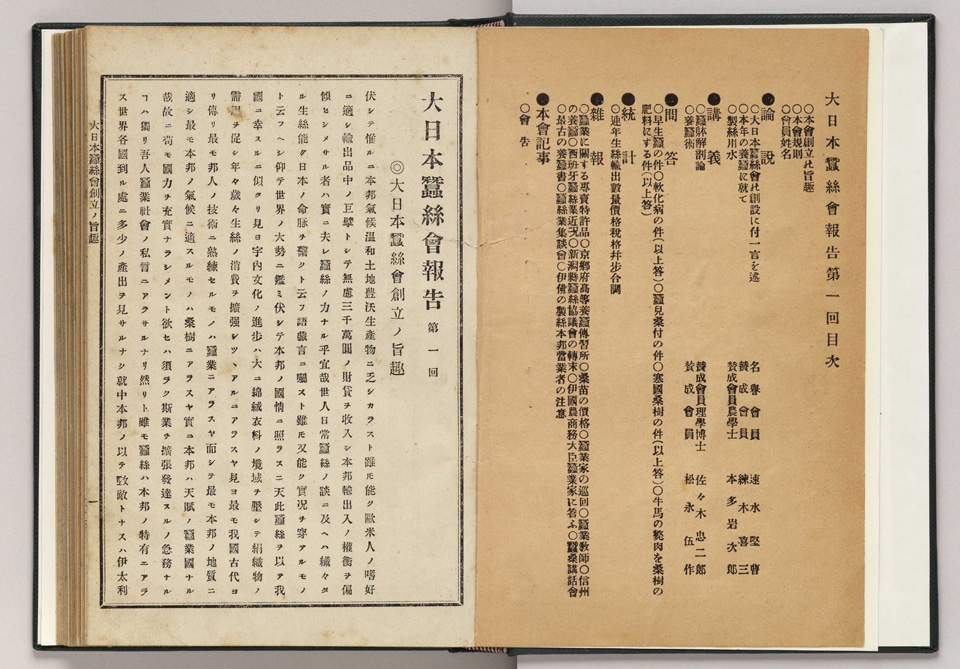 大日本蠶絲會報告第一回目次
○本會創立ノ旨趣
○本會規則
○會員姓名
●論説
○大日本蠶絲會ノ創設に付一言を述 名譽會員 速水堅曹
○本年の養蠶に就て 賛成會員 練木喜三
○製絲用水 賛成會員農學士 本多岩次郎
●講義
○蠶躰解剖論 賛成會員理學博士 佐々木忠二郎
○養蠶術 賛成會員 松永伍作
●問答
○早生蠶の件○軟化病の件(以上答)○蠶兒桑付の件○寒國桑樹の件(以上答)○牛馬の斃肉を桑樹の
肥料にする件(以上答)
●統計
○連年生絲輸出數量價格税格幷步合調
●雜報
○蠶業に關する專賣特許品○京都府高等養蠶傳習所○桑苗の價格○蠶業家の巡回○蠶業敎師○信州
の養蠶○西班牙蠶絲業近况○新潟縣蠶絲協議會の轉末○伊國農商務大臣蠶業家に答ふ○蠶桑講話會
○最古の養蠶書○蠶絲業集談會○伊佛の製絲本邦當業者の注意
●本會記事
○會告
大日本蠶絲會報告 第一回
◎大日本蠶絲會創立ノ旨趣
伏シテ惟ルニ本邦氣候温和土地豊沃生產物ニ乏シカラスト雖モ能ク歐米人ノ嗜好
ニ適シ輸出品中ノ巨擘トシテ無慮三千萬圓ノ財貨ヲ收入シ本邦輸出入ノ權衡ヲ偏
傾セシメサル者ハ實ニ夫レ蠶絲ノ力ナル乎宜哉世人日常蠶絲ノ談ニ及ヘハ纎々タ
ル生絲能ク日本ノ命脉ヲ繫クト云フ語戲言ニ屬スト雖モ又能ク實况ヲ穿アルモノ
ト云フヘシ仰テ世界ノ大勢ニ鑑ミ伏シテ本邦ノ國情ニ照ラスニ天此蠶絲ヲ以テ我
國ニ幸スルニ似タリ見ヨ宇内文化ノ進步ハ大ニ綿絨衣料ノ境域ヲ壓シテ絹織物ノ
需用ヲ促シ年々歲々生絲ノ消費ヲ擴張シツヽアルニアラスヤ見ヨ最モ我國古代ヨ
リ傳リ最モ邦人ノ技術ニ熟練セルモノハ蠶業ニアラスヤ而シテ最モ本邦ノ地質ニ
適シ最モ本邦ノ氣候ニ適スルモノハ桑樹ニアラスヤ實ニ本邦ハ天賦ノ蠶業國ナル
哉故ニ苟モ國力ヲ充實ナラシメント欲セハ須ラク斯業ヲ擴張發達スルノ急務ナル
ﾖハ獨リ吾人蠶業社會ノ私言ニアラサルナリ然リト雖モ蠶絲ハ本邦ノ特有ニアラ
ス世界各國到ル處ニ多少ノ產出ヲ見サルナシ就中本邦ノ以テ敵トナスハ伊太利
大日本蠶絲會創立ノ旨趣
一